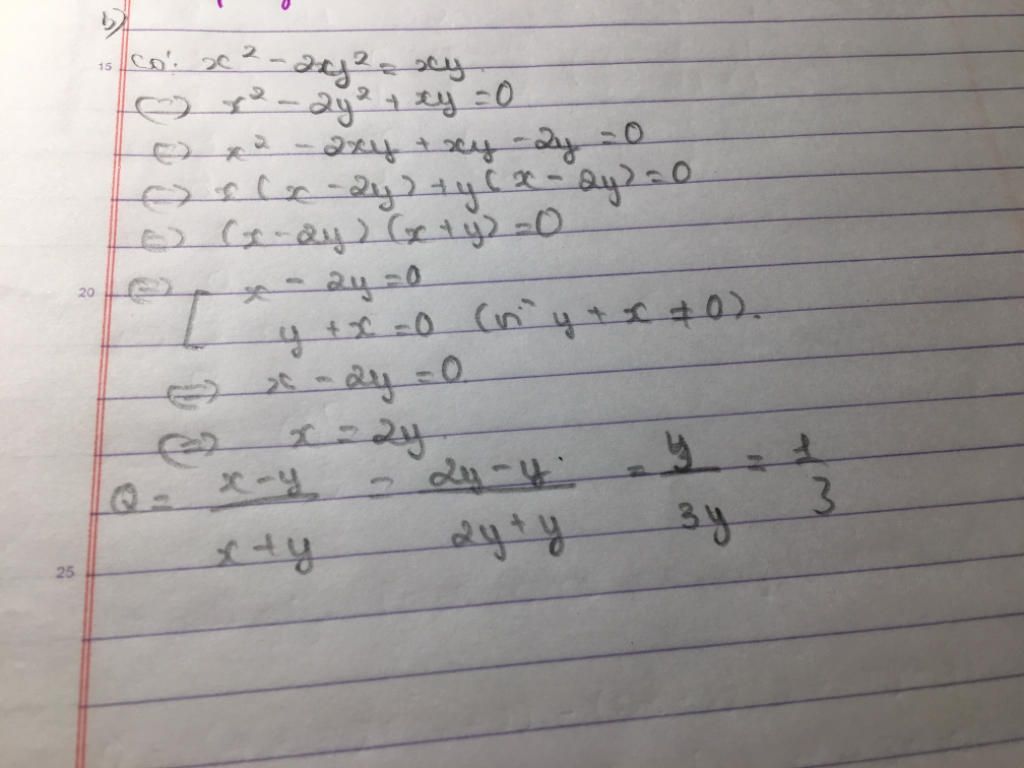 b)
15 Có: x² - 2xy² = xy
<=> x² - 2y² + xy = 0
<=> x² - 2xy + xy - 2y = 0
<=> x(x - 2y) + y(x - 2y) = 0
<=> (x - 2y)(x + y) = 0
20 <=> [ x - 2y = 0
y + x = 0 (vì y + x ≠ 0).
<=> x - 2y = 0
<=> x = 2y
Q = (x - y)/(x + y) = (2y - y)/(2y + y) = y/3y = 1/3
25